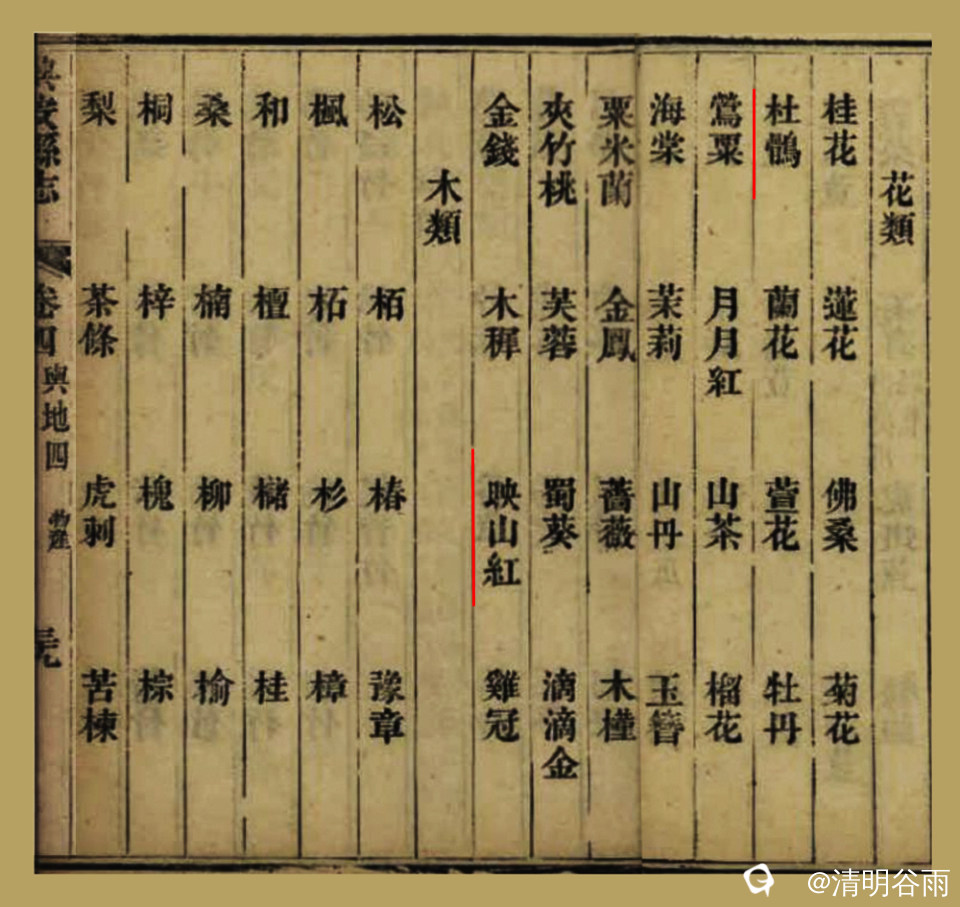 花類
桂花 蓮花 佛桑 菊花
杜鶻 蘭花 萱花 牡丹
鶯粟 月月紅 山茶 榴花
海棠 茉莉 山丹 玉簪
粟米蘭 金鳳 薔薇 木槿
夾竹桃 芙蓉 蜀葵 滴滴金
金錢 木穉 映山紅 雞冠
木類
松 栢 椿 豫章
楓 柘 杉 樟
和 檀 櫧 桂
桑 楠 柳 榆
桐 梓 槐 棕
梨 茶條 虎刺 苦楝
安縣志 卷四 輿地四 物產
@清明谷雨